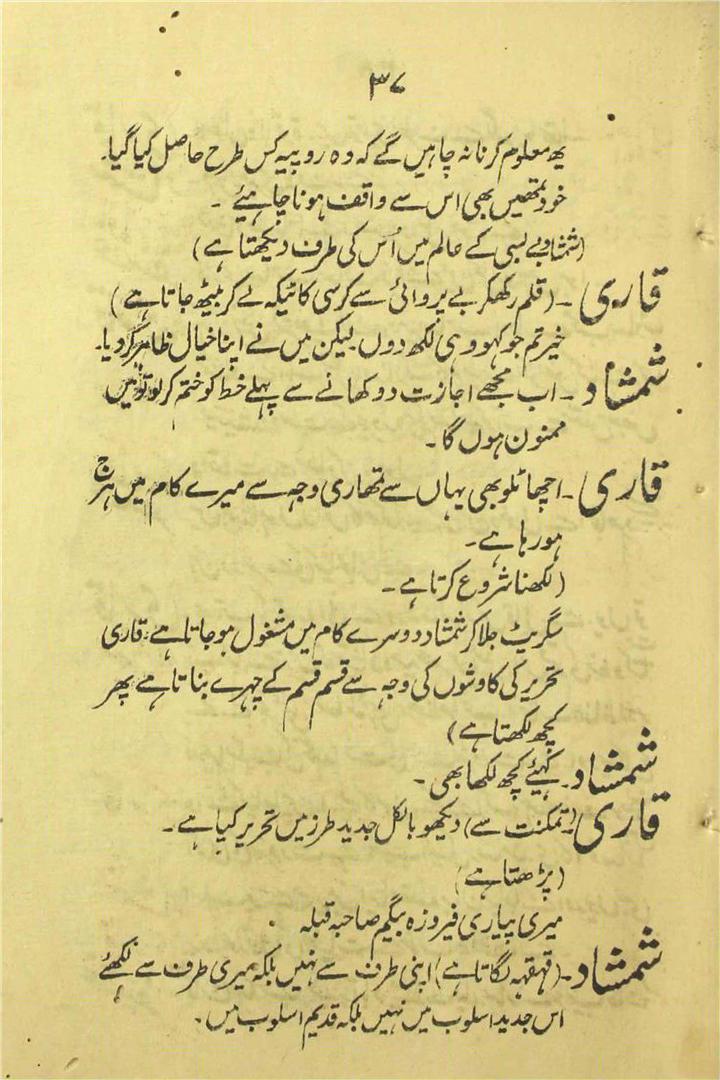 ۳۷
یہ معلوم کرنا نہ چاہیں گے کہ وہ روپیہ کس طرح حاصل کیا گیا۔
خود تمھیں بھی اس سے واقف ہونا چاہیئے ۔
(شمشاد بے بسی کے عالم میں اُس کی طرف دیکھتا ہے)
قاری ۔ (قلم رکھکر بے پروائی سے کرسی کا ٹیکہ لے کر بیٹھ جاتا ہے)
خیر تم جو کہو وہی لکھ دوں لیکن میں نے اپنا خیال ظاہر کر دیا۔
شمشاد ۔ اب مجھے اجازت دو کھانے سے پہلے خط کو ختم کر لو تو میں
ممنون ہوں گا ۔
قاری ۔ اچھا ٹلو بھی یہاں سے تمھاری وجہ سے میرے کام میں ہرج
ہو رہا ہے ۔
(لکھنا شروع کرتا ہے ۔
سگریٹ جلا کر شمشاد دوسرے کام میں مشغول ہو جاتا ہے قاری
تحریر کی کاوشوں کی وجہ سے قسم قسم کے چہرے بناتا ہے پھر
کچھ لکھتا ہے)
شمشاد ۔ کہیئے کچھ لکھا بھی ۔
قاری ۔ (تمکنت سے) دیکھو بالکل جدید طرز میں تحریر کیا ہے ۔
(پڑھتا ہے)
میری پیاری فیروزہ بیگم صاحبہ قبلہ
شمشاد ۔ (قہقہہ لگاتا ہے) اپنی طرف سے نہیں بلکہ میری طرف سے لکھئے
اس جدید اسلوب میں نہیں بلکہ قدیم اسلوب میں ۔